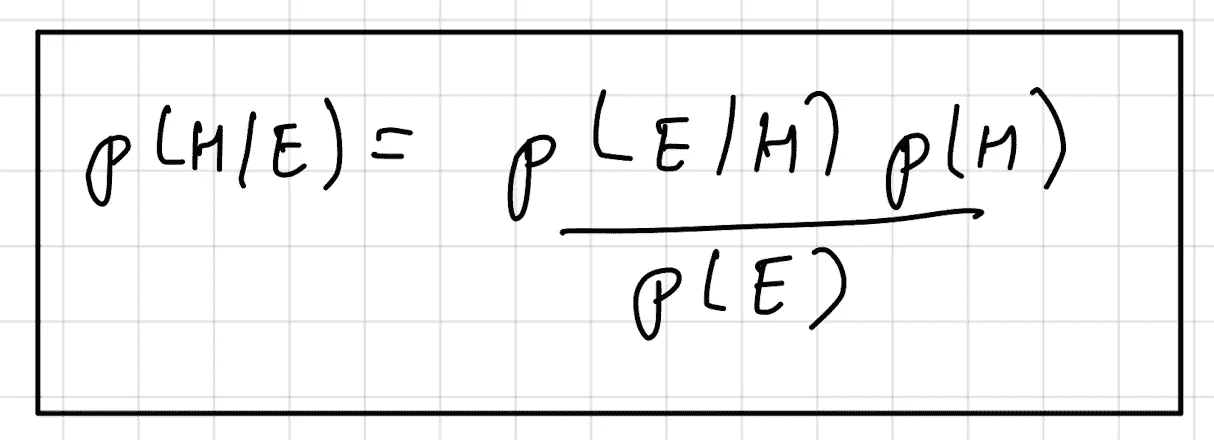 p(H/E) = p(E/H) p(H)
p(E)